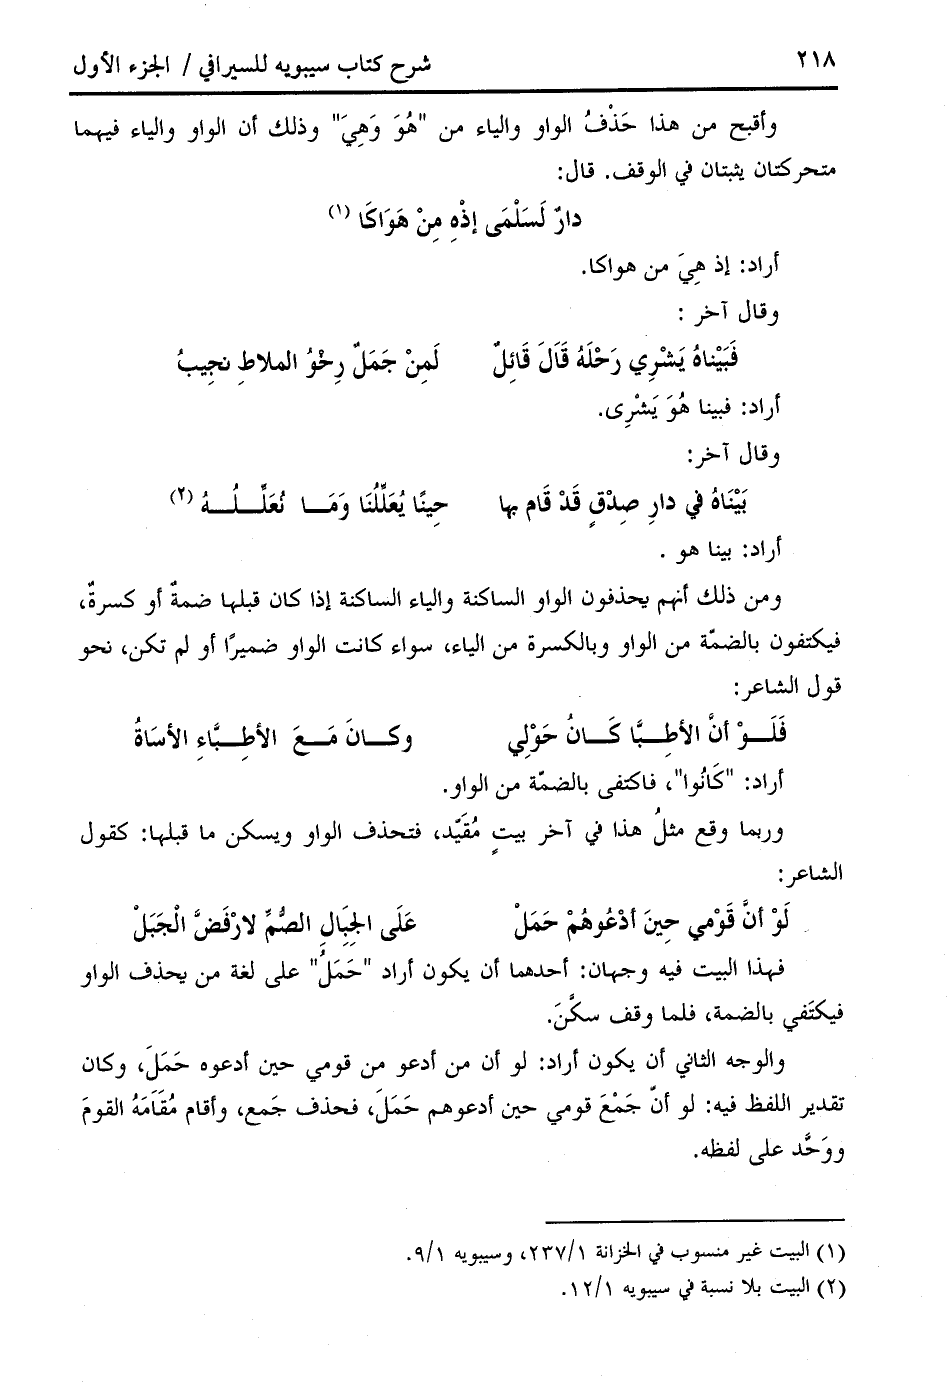 ٢١٨
شرح كتاب سيبويه للسيرافي / الجزء الأول
وأقبح من هذا حَذْفُ الواو والياء من "هُوَ وَهِيَ" وذلك أن الواو والياء فيهما
متحركتان يثبتان في الوقف. قال:
دارٌ لَسَلْمَى إذْهِ مِنْ هَوَاكَا (١)
أراد: إذ هِيَ من هواكا.
وقال آخر :
فَبَيْناهُ يَشْرِي رَحْلَهُ قَالَ قَائِلٌ لَمِنْ جَمَلٌ رِخْوُ الملاطِ نجيبُ
أراد: فبينا هُوَ يَشْرِى.
وقال آخر:
بَيْنَاهُ في دارِ صِدْقٍ قَدْ قَام بها حِينًا يُعَلِّلُنَا وَمَـا نُعَلِّـلُـهُ (٢)
أراد: بينا هو .
ومن ذلك أنهم يحذفون الواو الساكنة والياء الساكنة إذا كان قبلها ضمةٌ أو كسرةٌ،
فيكتفون بالضمّة من الواو وبالكسرة من الياء، سواء كانت الواو ضميرًا أو لم تكن، نحو
قول الشاعر:
فَلَـوْ أنَّ الأطِـبَّا كَـانُ حَوْلِي وكـانَ مَـعَ الأطِـبَّاءِ الأسَاةُ
أراد: "كَانُوا"، فاكتفى بالضمّة من الواو.
وربما وقع مثلُ هذا في آخر بيتٍ مُقَيَّد، فتحذف الواو ويسكن ما قبلها: كقول
الشاعر:
لَوْ أنَّ قَوْمي حِينَ أدْعُوهُمْ حَمَلْ عَلَى الجِبَالِ الصُّمِّ لارْفَضَّ الْجَبَلْ
فهذا البيت فيه وجهان: أحدهما أن يكون أراد "حَمَلُ" على لغة من يحذف الواو
فيكتَفي بالضمة، فلما وقف سكَّنَ.
والوجه الثاني أن يكون أراد: لو أن من أدعو من قومي حين أدعوه حَمَلَ، وكان
تقدير اللفظ فيه: لو أنّ جَمْعَ قومي حين أدعوهم حَمَلَ، فحذف جَمع، وأقام مُقَامَهُ القومَ
ووَحَّد على لفظه.
(١) البيت غير منسوب في الخزانة ٢٣٧/١، وسيبويه ٩/١.
(٢) البيت بلا نسبة في سيبويه ١٢/١.